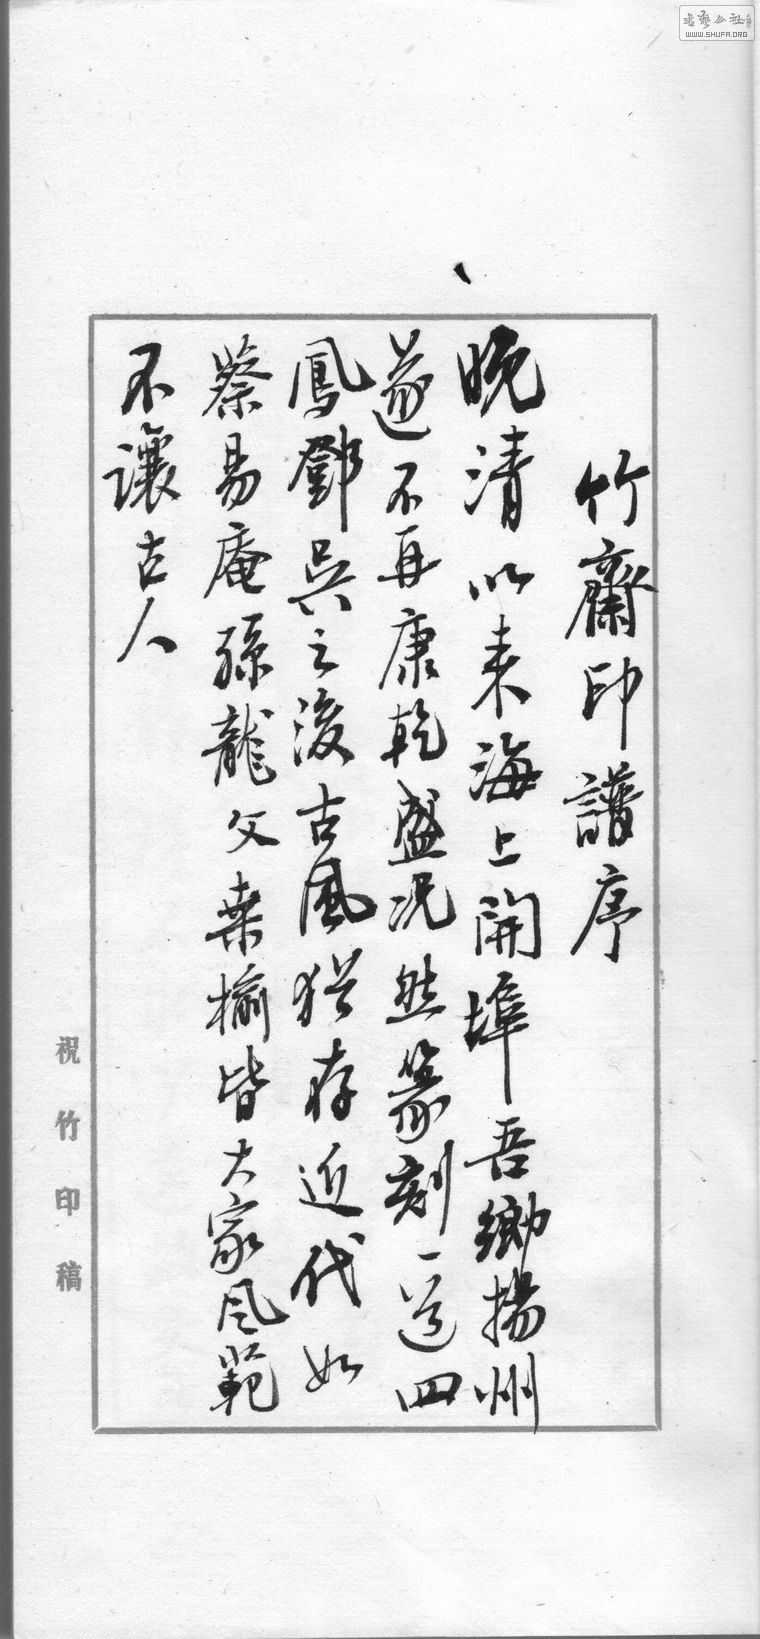 竹齋印譜序
晚清以来海上開埠吾鄉揚州
遂不再康乾盛况然篆刻一道四
鳳鄧吳之後古風猶存近代如
蔡易庵孫龍父桑榆皆大家风範
不讓古人
祝竹印稿
書藝公社
WWW.SHUFA.ORG